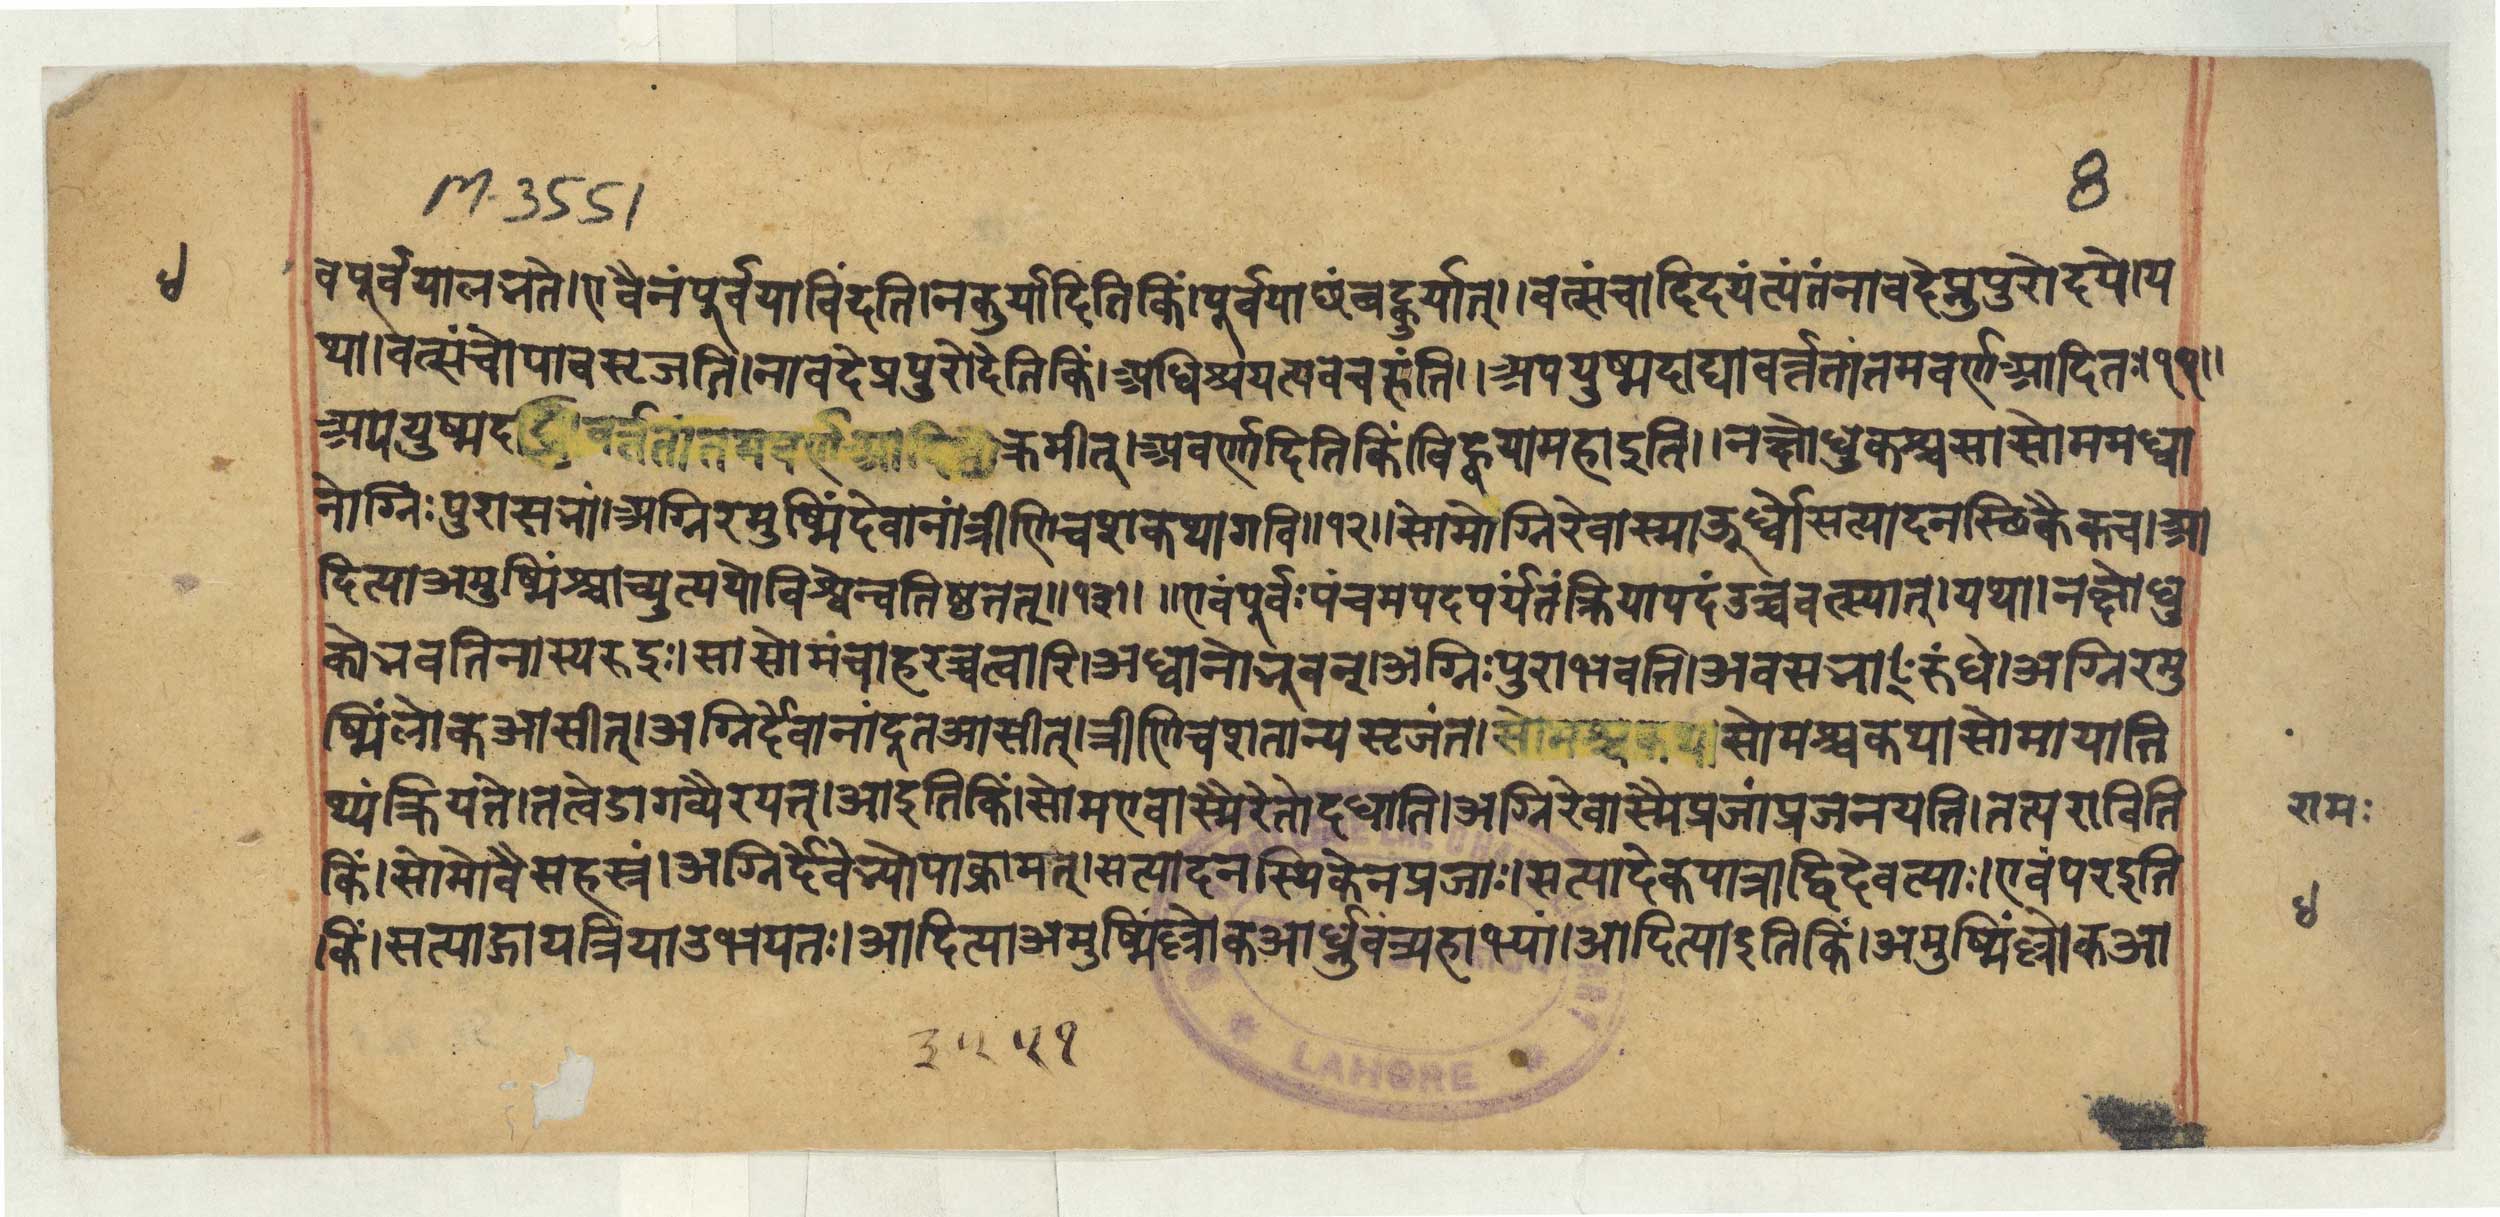 M-3551
8
४
वपूर्वयालभते।एवैनंपूर्वयाविंदति।नकुर्यादितिकिं।पूर्वया
वत्संचा
थ्या।वत्संचोपावसृजति।नावदेप्रपुरोदेतिकिं।अधिश्रयंत्यवेच।।अपयुष्मदाद्यावर्त्ततांतमवर्ण्णआदितः।११।।
अपयुष्मद क्रमीत्।अवर्ण्णदितिकिं।विह्वयामहाइति।।नद्धोधुकश्चसासोममध्वा
नोग्निःपुरासन्नां।अग्निरमुष्मिंदेवानांत्रीणिचशकथागवि॥१२॥सोमोग्निरेवास्माऊर्ध्वोसत्यादनस्थिकैकच।आ
दित्याअमुष्मिंश्चाच्युत्ययोविश्वेन्वतिष्ठत्तेत्॥१३॥ ॥एवंपूर्वःपंचमपदपर्यंतंक्रियापदंउच्चवत्स्यात्।यथा।नद्धोधु
कोभवतिनास्यरुदुः।सासोमंचाहरच्चत्वारि।अध्वानोभूवन्।अग्निःपुराभवति।अवसन्नांरुंधे।अग्निरमु
ष्मिंलोकेआसीत्।अग्निर्देवानांदूतआसीत्।त्रीणिचशतान्यसृजंत।सोमश्चकया सोमश्चकयासोमायाति
थ्यंक्रियते।तत्वेडागव्यैरयत्।आइतिकिं।सोमएवास्मैरेतोदधाति।अग्निरेवास्मैप्रजांप्रजनयति।तत्पराविति
रामः
किं।सोमोवैसहस्रं।अग्निर्देवेभ्योपाक्रामत्।सत्यादनस्थिकेनप्रजाः।सत्यादेकपात्राद्विदेवत्याः।एवंपरइति
४
किं।सत्याद्गायत्रियाउभयतः।आदित्याअमुष्मिंल्लोकआर्ध्नुवंन्महाभ्यां।आदित्याइतिकिं।अमुष्मिंल्लोकआ
३५५१
LAHORE